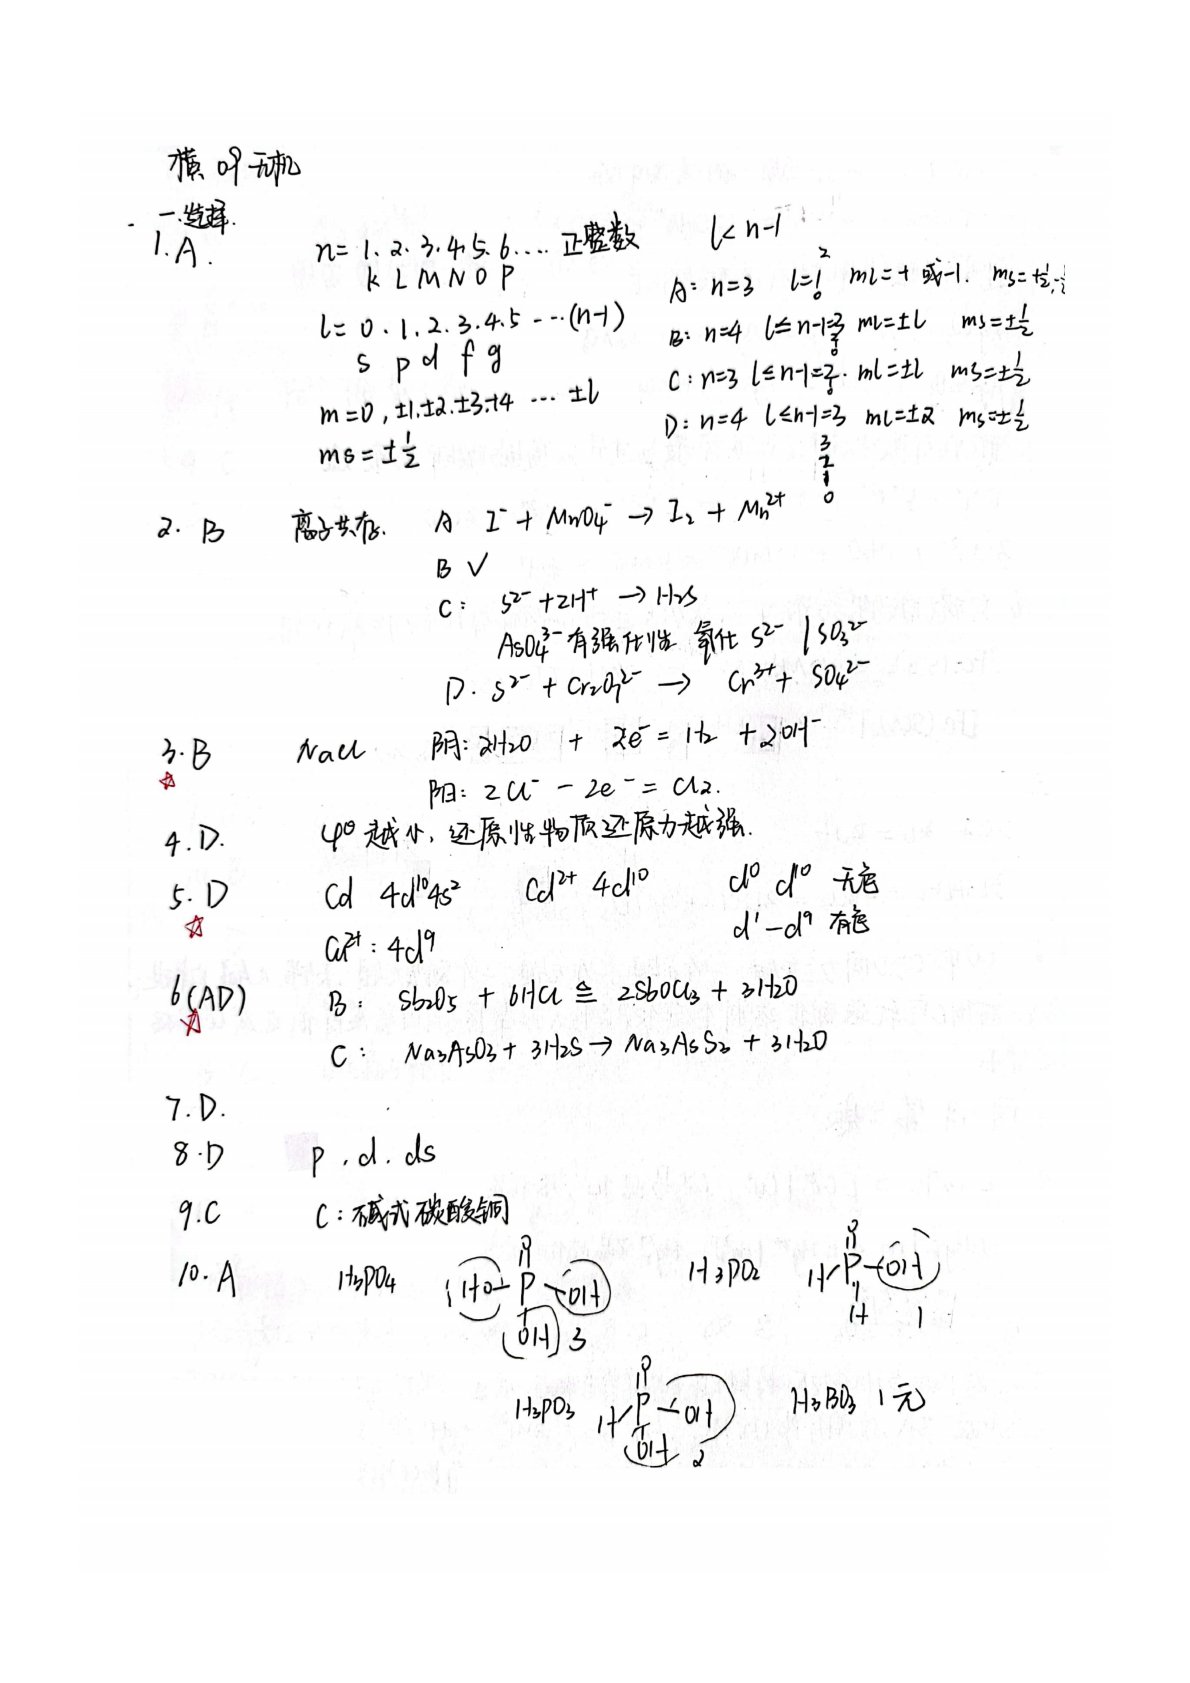 横 09 无机
一.选择.
1.A.
n= 1. 2. 3. 4. 5. 6.... 正整数 l< n-1
K L M N O P
l= 0. 1. 2. 3. 4. 5 ---(n-1)
s p d f g
m=0, ±1. ±2. ±3. ±4 ... ±l
ms = ±1/2
A: n=3 l=2 1 0 ml=+ 或-1. ms=+1/2,-1/2
B: n=4 l≤n-1=3 2 1 0 ml=±l ms=±1/2
C: n=3 l≤n-1=2 1 0. ml=±l ms=±1/2
D: n=4 l≤n-1=3 ml=±2 ms=±1/2
3
2
1
0
2. B 离子共存. A I⁻ + MnO4⁻ → I2 + Mn²⁺
B √
C: S²⁻ +2H⁺ → H2S
AsO4³⁻ 有强化性 氧化 S²⁻ / SO3²⁻
D. S²⁻ + Cr2O7²⁻ → Cr³⁺ + SO4²⁻
3. B NaCl 阴: 2H2O + 2e⁻ = H2 + 2OH⁻
☆ 阳: 2Cl⁻ - 2e⁻ = Cl2.
4. D. φ⁰越小, 还原性物质还原力越强.
5. D Cd 4d¹⁰4s² Cd²⁺ 4d¹⁰ d⁰ d¹⁰ 无色
☆ Cu²⁺: 4d⁹ d¹-d⁹ 有色
6(AD) B: Sb2O5 + 6HCl ≌ 2SbOCl3 + 3H2O
☆ C: Na3AsO3 + 3H2S → Na3AsS3 + 3H2O
7. D.
8. D p. d. ds
9. C C: 碱式碳酸铜
10. A H3PO4 HO-P-OH O OH 3 H3PO2 H-P-OH O H 1
H3PO3 H-P-OH O OH 2 H3BO3 1元